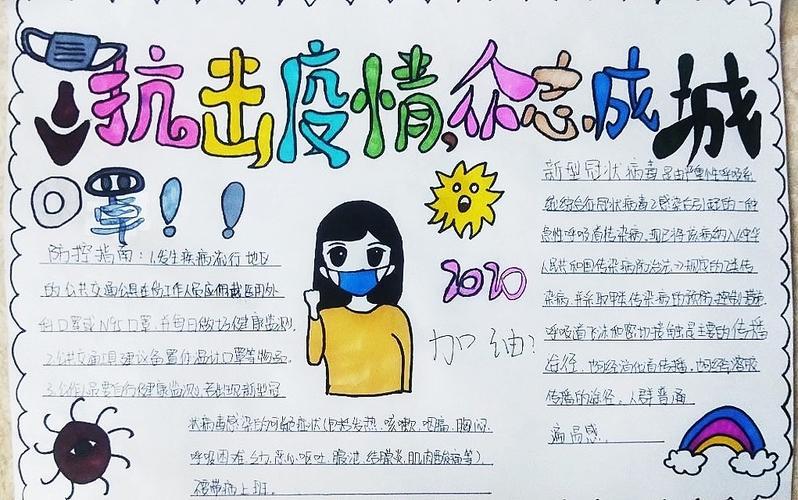 抗击疫情,众志成城
口罩!!
防控指南:1.发生疾病流行地区
的公共交通工具在岗工作人员应佩戴医用外
科口罩或N95口罩,并每日做好健康监测.
2.公共交通工具建议备置体温计口罩等物品.
3.工作人员要自行健康监测,若出现新型冠
状病毒感染的可能症状(包括发热、咳嗽、咽痛、胸闷、
呼吸困难、乏力、恶心呕吐、腹泻、结膜炎、肌肉酸痛等)
硬带病上班。
2020
加油!
新型冠状病毒是由严重性呼吸系
冠状病毒2感染引起的一种
急性呼吸道传染病,现已将该病纳入中华
人民共和国传染病防治法乙类传
染病,并采取甲类传染病的预防,控制措施.
呼吸道飞沫和密切接触是主要的传播
途径.也可经消化道传播,
传播的途径。人群普遍
易感.